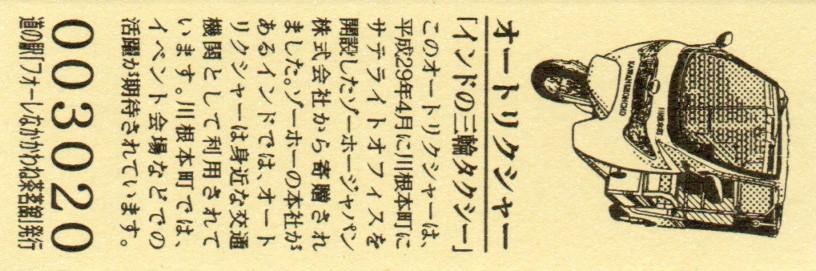 KAWANEHONCHO
川根本町
オートリクシャー
「インドの三輪タクシー」
このオートリクシャーは、
平成29年4月に川根本町に
サテライトオフィスを
開設したゾーホージャパン
株式会社から寄贈され
ました。ゾーホーの本社が
あるインドでは、オート
リクシャーは身近な交通
機関として利用されて
います。川根本町では、
イベント会場などでの
活躍が期待されています。
003020
道の駅「フォーレなかかわね茶茗舘」発行